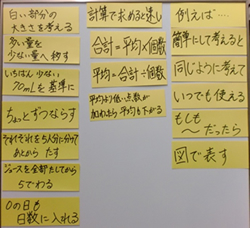 白い部分の
大きさを考える
多い量を
少ない量へ移す
いちばん少ない
70mLを基準に
ちょっとずつならす
それぞれを5人分に分けて
あとから たす
ジュースを全部たしてから
5でわる
0の日も
日数に入れる
計算で求めると速い
合計=平均×個数
平均=合計÷個数
平均より低い点数が
加わると 平均も下がる
例えば‥‥
簡単にして考えると
同じように考えて
いつでも使える
もしも
〜だったら
図で表す